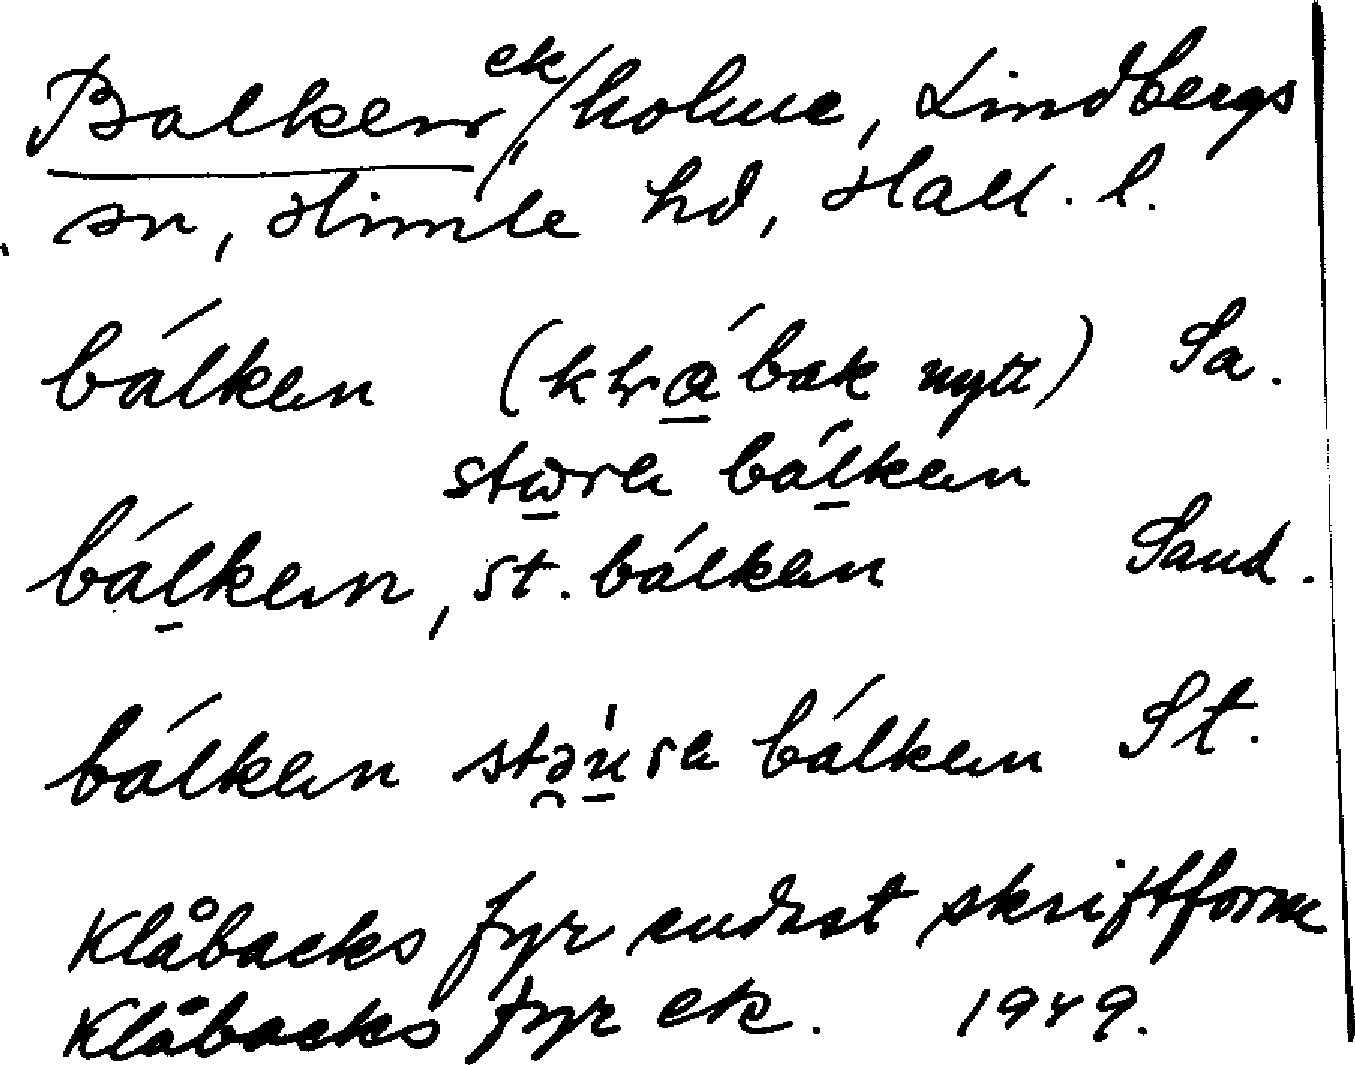 Balken ek/holme, Lindbergs
sn, Himle hd, Hall. l.
bálken (klɷ̱́bak nytt) Sa.
stɷ̱ra báḻken
báḻken, st. bálken Sand.
bálken stə̯u̱̍ra bálken St.
Klåbacks fyr endast skriftform
Klåbacks fyr ek. 1949.